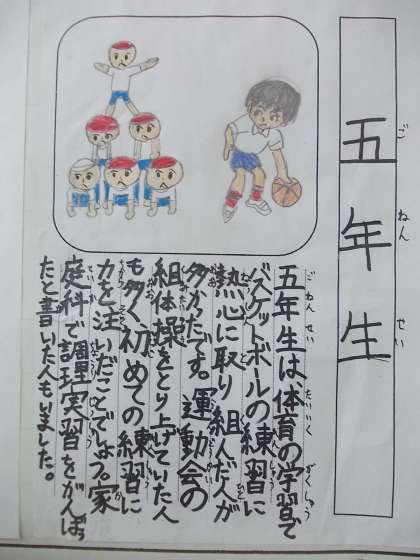 五年生
ごねんせい
五年生は、体育の学習で
バスケットボールの練習に
熱心に取り組んだ人が
多かったです。運動会の
組体操をとり上げていた人
も多く、初めての練習に
力を注いだことでしょう。家
庭科で調理実習をがんばっ
たと書いた人もいました。